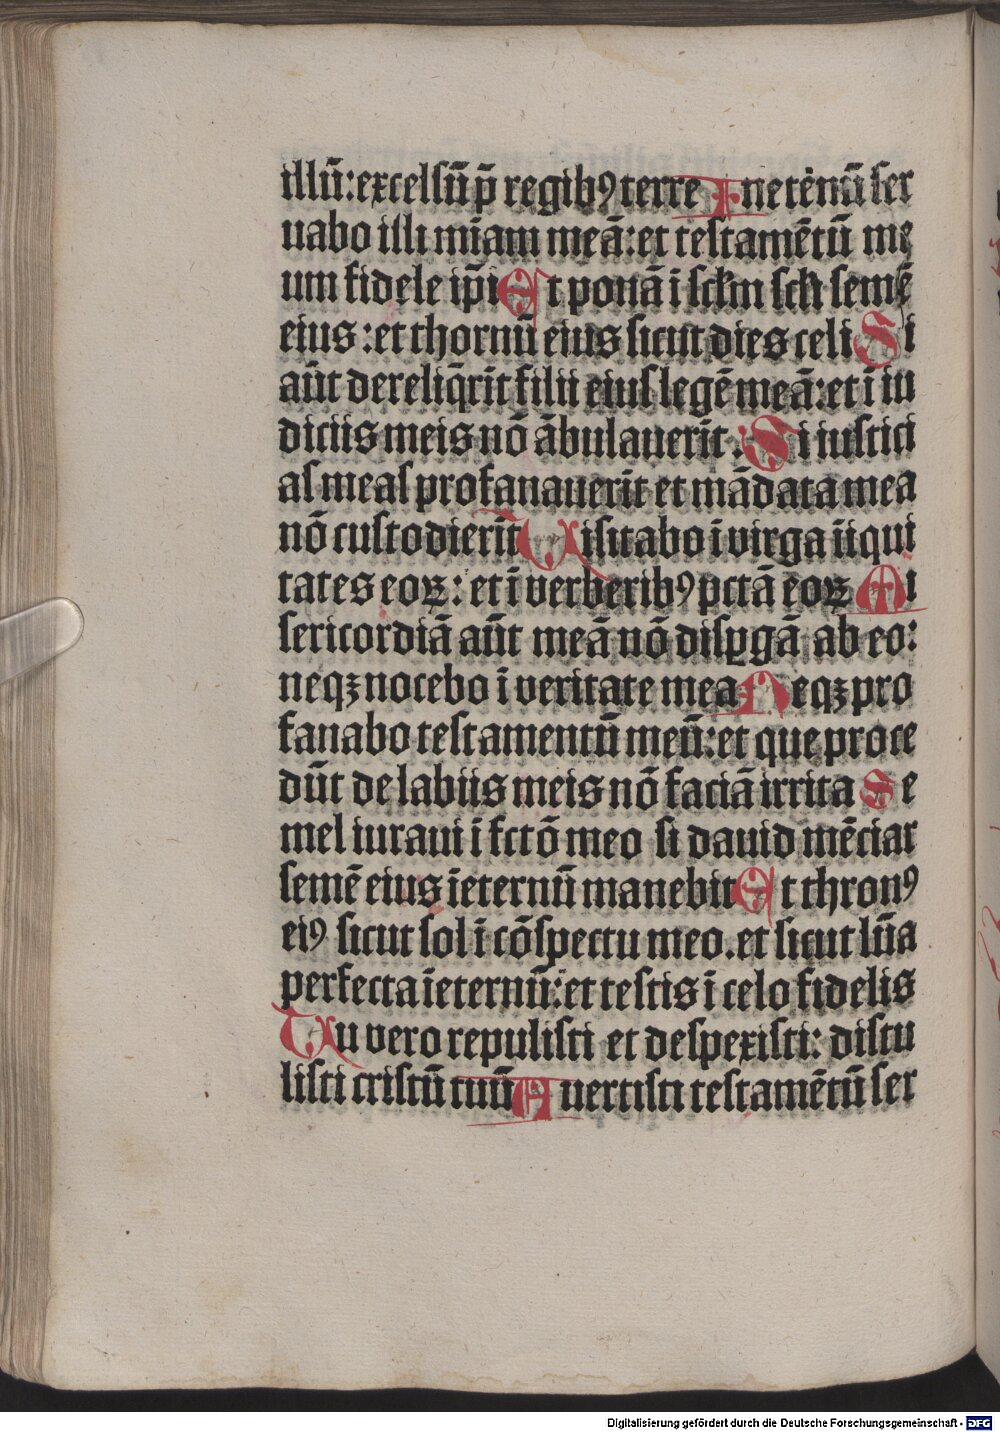 illū: excelsū p̄ regibꝰ terre In etēnū ser
uabo illi mīam meā: et testamētū me
um fidele ip̄i Et ponā ī sclm scli semē
eius: et thornū eius sicut dies celi Si
aūt dereliq̄rīt filii eius legē meā: et ī iu
diciis meis nō ābulauerīt: Si iustici
as meas profanauerīt et mādata mea
nō custodierīt Uisitabo ī virga iiqui
tates eoꝝ: et ī verberibꝰ pctā eoꝝ Mi
sericordiā aūt meā nō disꝑgā ab eo:
neqꝫ nocebo ī veritate mea Neqꝫ pro
fanabo testamentū meū: et que proce
dūt de labiis meis nō faciā irrita Se
mel iuraui ī sctō meo si dauid mēciar
semē eius īeternū manebit Et thronꝰ
eiꝰ sicut sol ī cōspectu meo. et sicut lūa
perfecta īeternū: et testis ī celo fidelis
Tu vero repulisti et despexisti: distu
listi cristū tuū Auertisti testamētū ser
Digitalisierung gefördert durch die Deutsche Forschungsgemeinschaft - DFG